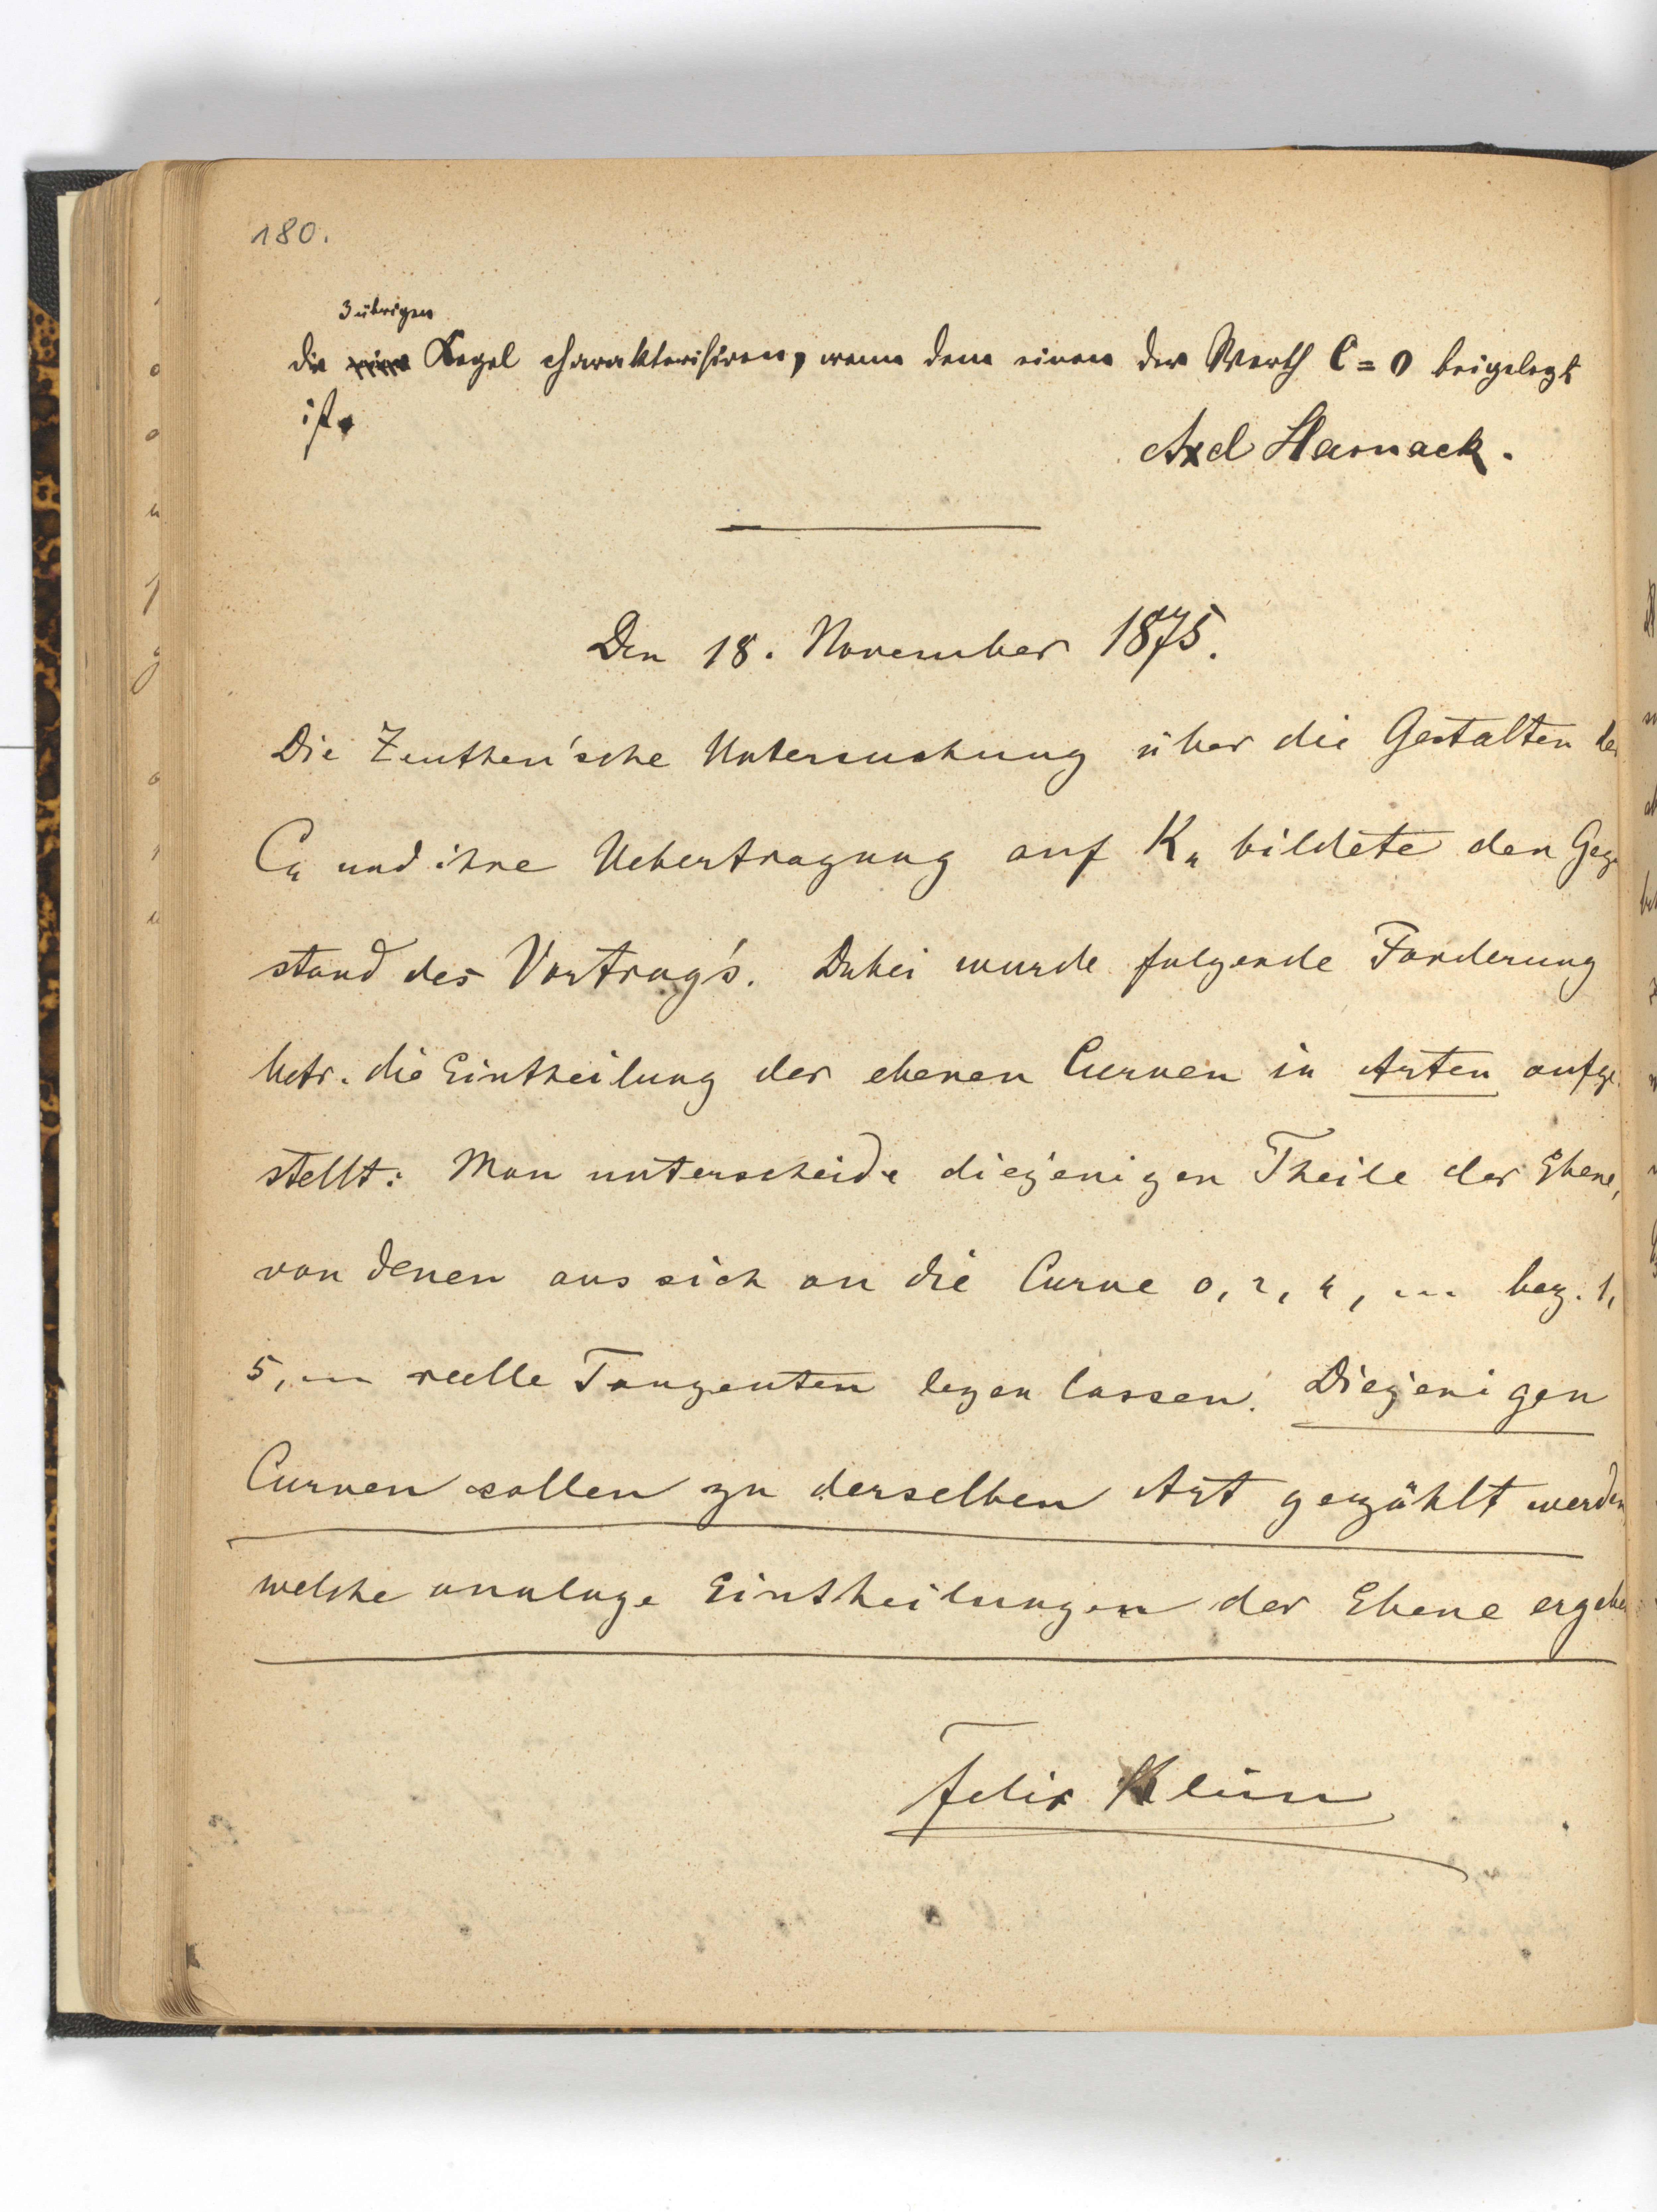 180.
3 übrigen
die Kegel charakterisiren, wenn dem einen der Werth C = 0 beigelegt
ist.
Axel Harnack.
Den 18. November 1875.
Die Zeuthen'sche Untersuchung über die Gestalten der
C4 und ihre Uebertragung auf K4 bildete den Gegen
stand des Vortrag's. Dabei wurde folgende Forderung
betr. die Eintheilung der ebenen Curven in Arten aufge
stellt: Man unterscheide diejenigen Theile der Ebene,
von denen aus sich an die Curve 0, 2, 4, ... bez. 1,
5, ... reelle Tangenten legen lassen. Diejenigen
Curven sollen zu derselben Art gezählt werden,
welche analoge Eintheilungen der Ebene ergeben
Felix Klein